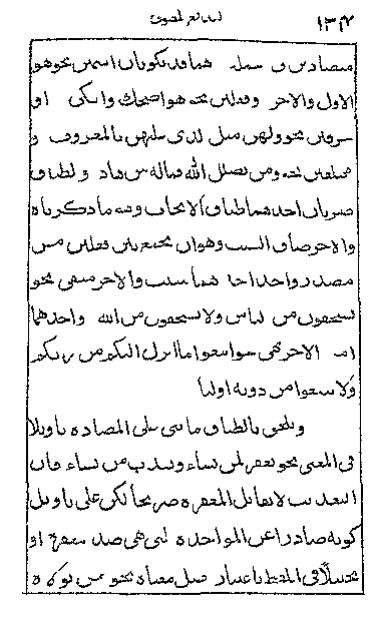 متضادين في جملة فهما قد يكونان اسمين نحو هو
الاول والاخر وفعلين نحو هو اضحك وابكى او
حرفين نحو ولهن مثل لذي عليهن بالمعروف و
مختلفين نحو ومن يضلل الله فماله من هاد ولطباق
ضربان احدهما طباق الايجاب ومنه ما ذكرناه
والاخر طباق السلب وهو ان يجمع بين فعلين من
مصدر واحد احدهما مثبت والاخر منفي نحو
يستخفون من لناس ولا يستخفون من الله واحدهما
امر الاخر نهي نحو اتبعوا ما انزل اليكم من ربكم
ولا تتبعوا من دونه اوليا
ويلحق بالطباق ما بني على المضادة تاويلا
في المعنى نحو يغفر لمن يشاء ويعذب من يشاء فان
التعذيب لا يقابل المغفرة صريحا لكن على تاويل
كونه صادرا عن المواخذة لتي هي ضد المغفرة او
تخييلا في اللفظ باعتبار اصل معناه نحو من تولاه